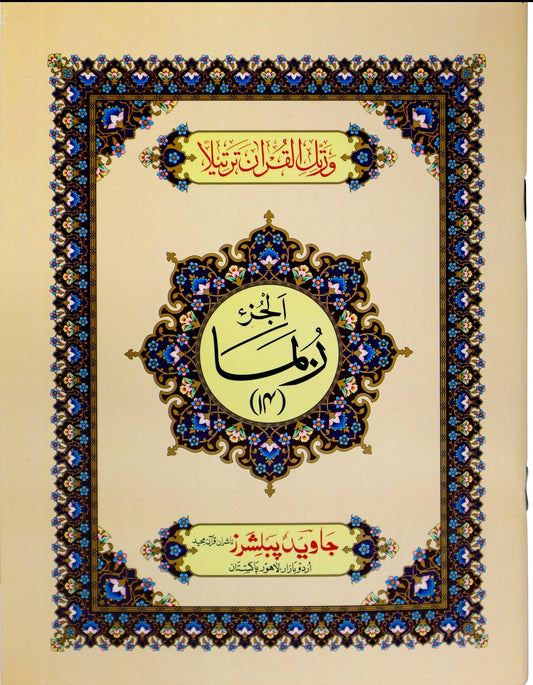 وَرَتِّلِ الْقُرْاٰنَ تَرْتِيْلًا
اَلْجُزْء
رُبَمَا
(۱۴)
جاوید پبلشرز ناشران قرآن مجید
اردو بازار لاہور پاکستان